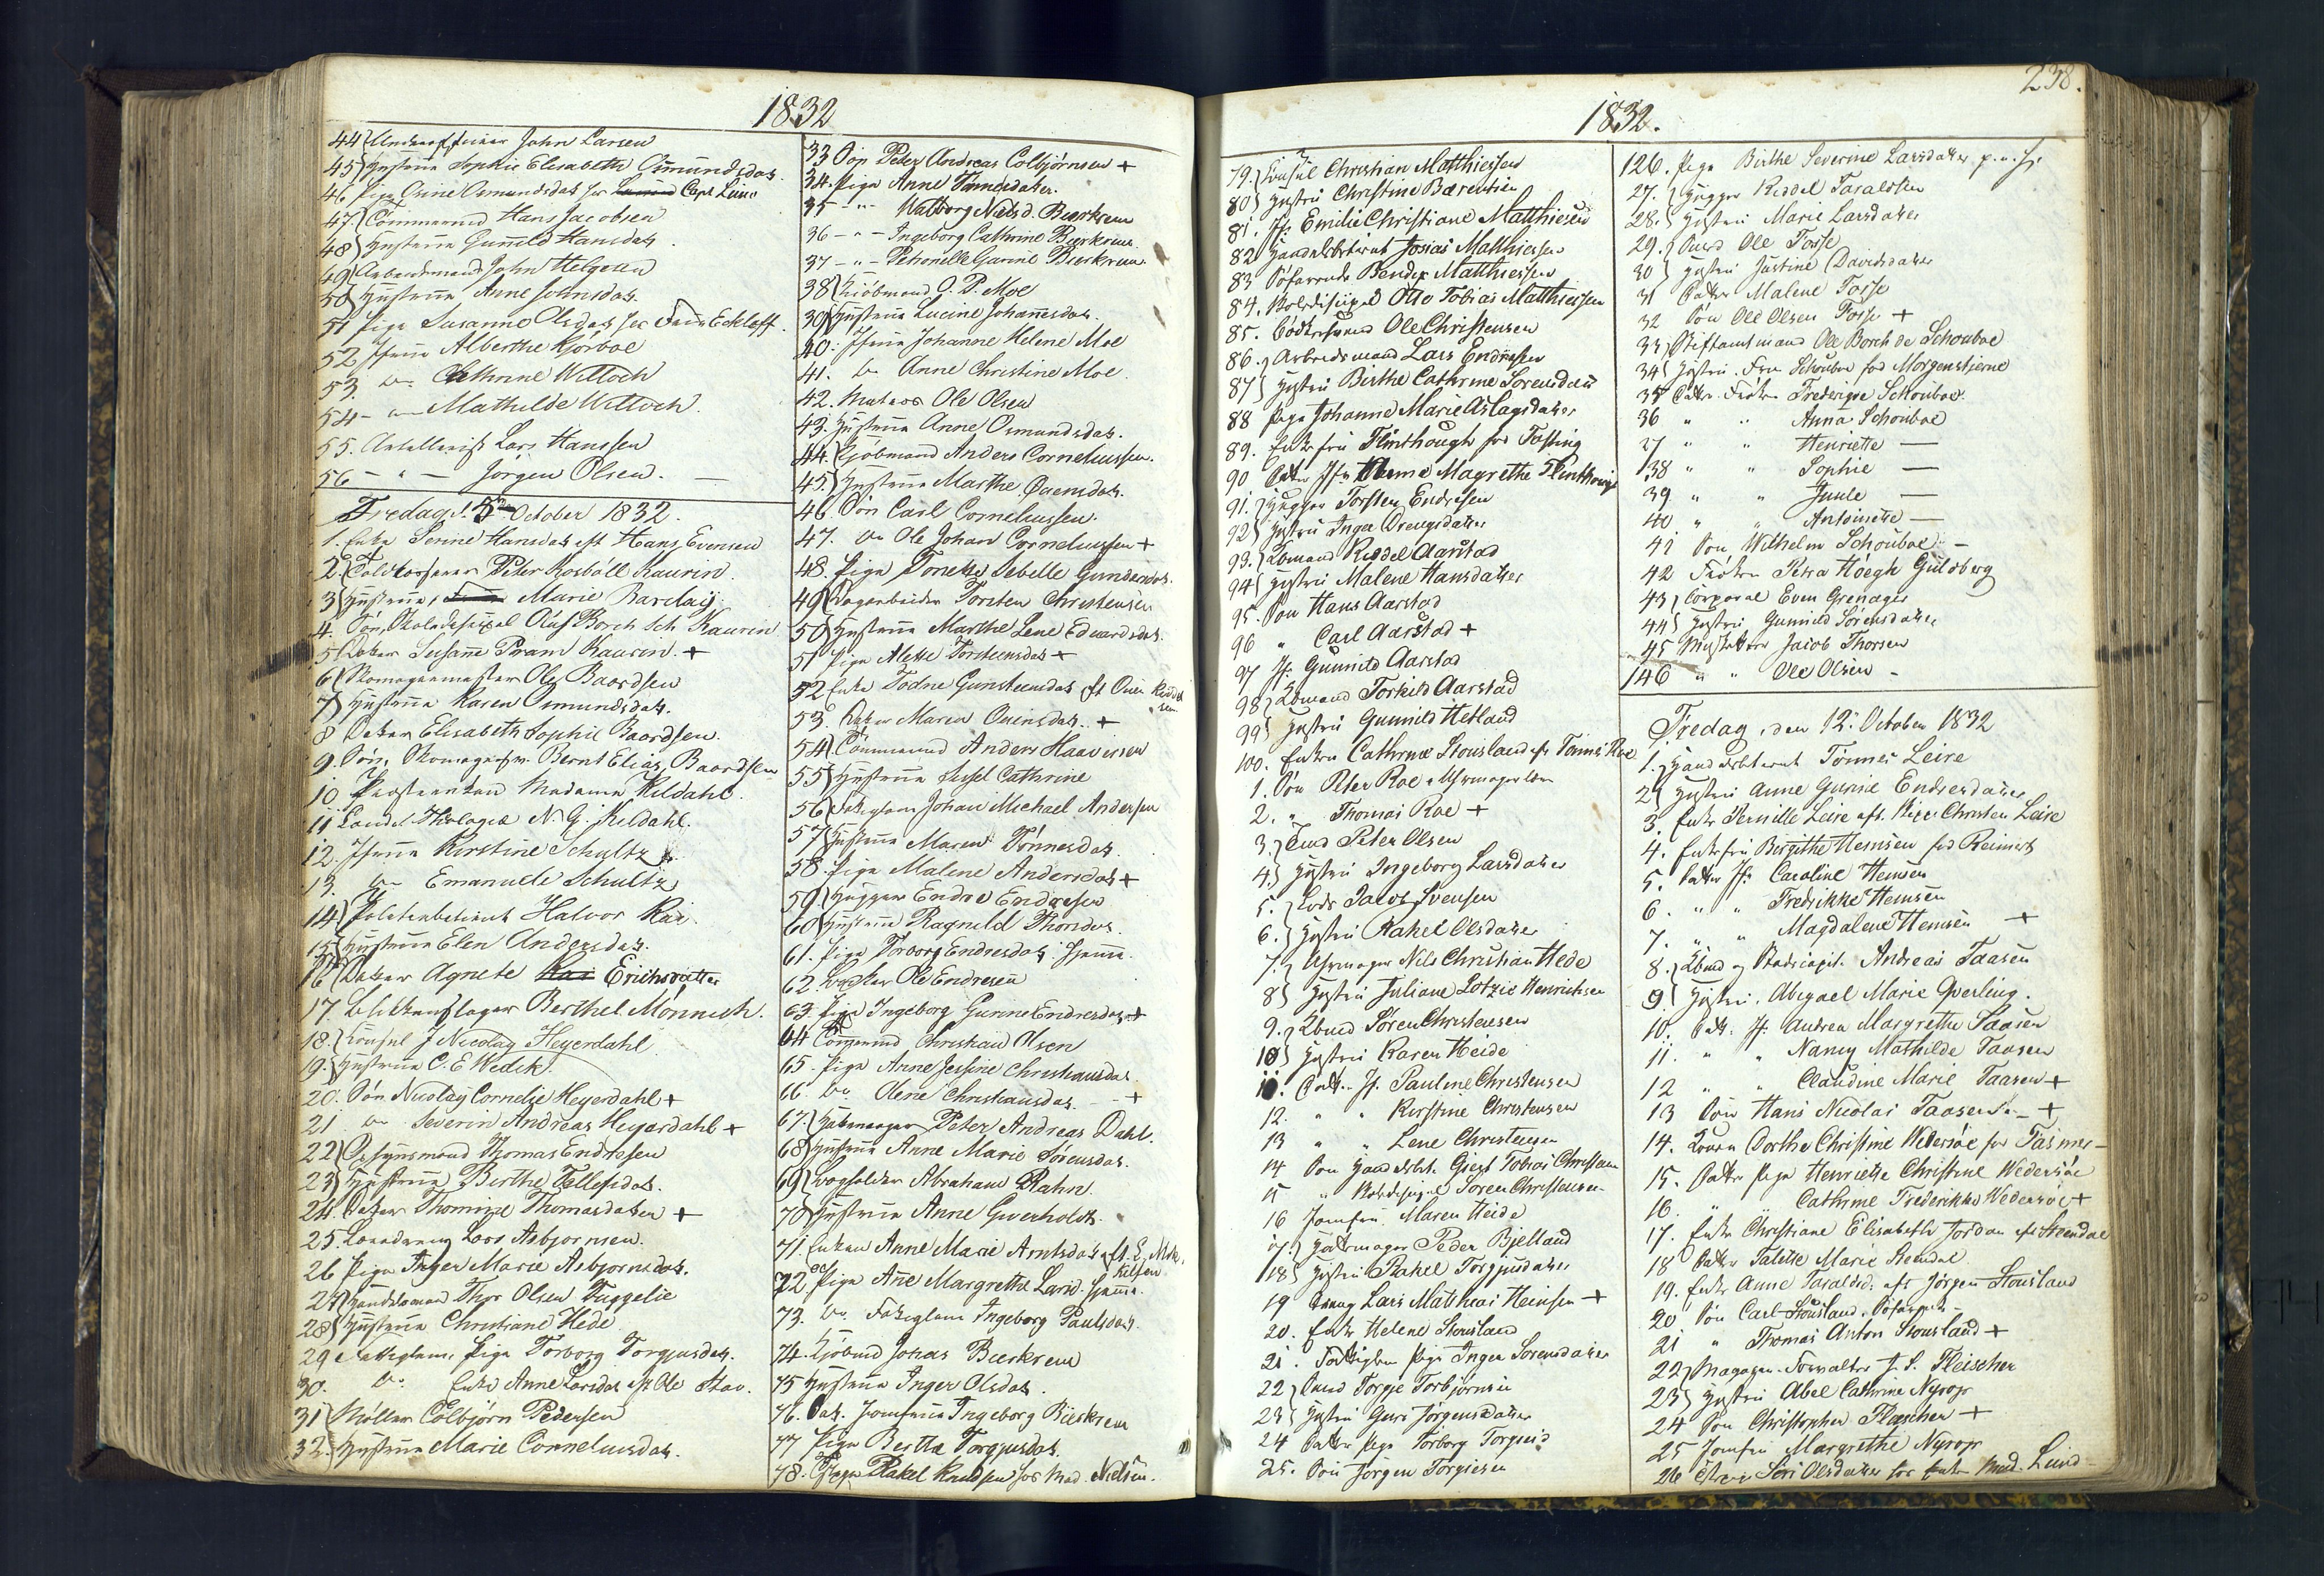 1832
44 Underofficeer John Larsen
45 Hustrue Sophie Elisabeth Osmundsdat.
46 Pige Osine Osmundsdat hos Capt Leire
47 Tømmermd Hans Jacobsen
48 Hustrue Gunild Hansdat.
49 Arbeidsmand John Helgesen
50 Hustrue Anne Johnsdat.
51 Pige Susanne Olsdat hos Eckloff.
52 Jfrue Alberthe Kjørboe
53. do Cathrine Willoch
54 - Mathilde Willoch.
55. Artillerist Lars Hanssen
56 - " - Jørgen Olsen. -
Fredag d. 5 October 1832.
1. Enke Senne Hansdat eft Hans Evensen
2. Toldkasserer Peter Rosbøll Kaurin.
3 Hustrue, Marie Barclay.
4. Søn, Skoledisipel Oluf Borch Sch Kaurin
5 Datter Susanne Pram Kaurin. +
6 Skomagermester Ole Baardsen
7 Hustrue Karen Osmundsdat.
8 Datter Elisabeth Sophie Baardsen.
9. Søn, Skomagersv. Bernt Elias Baardsen
10 Provstenken Madame Kildahl.
11 Cand. Theologiæ N. G. Kildahl.
12. Jfrue Kirstine Schultz
13. do Emanuele Schultz
14 Politiebetient Halvor Rai
15 Hustrue Elen Andersdat.
16 Datter Agnete Erichsdatter
17. Blikkenslager Berthel Mønnich.
18. Consul J Nicolay Heyerdahl
19. Hustrue C. E Wedek.
20. Søn Nicolay Cornelie Heyerdahl +
21 do Severin Andreas Heyerdahl +
22 Opsynsmand Thomas Endresen
23 Hustrue Berthe Tellefsdat.
24. Datter Thomine Thomasdatter +
25. Lars Asbjørnsen.
26 Pige Inger Marie Asbjørnsdat.
27 Handelsmand Thor Olsen Tuggelie
28 Hustrue Christiane Hede
29 Fattiglem, Pige Torborg Torgjusdat.
30. do Enke Anne Larsdat eft Ole Stav.
31 Møller Colbjørn Pedersen
32. Hustrue Marie Corneliusdat.
33 Søn Peter Andreas Colbjørnsen +
34. Pige Anne Tønnesdatter.
35 - " - Walborg Nielsd. Bierkrem
36 - " - Ingeborg Cathrine Bierkrem.
37 - " - Petronelle Garine Bierkrem.
38 Kiøbmand O. P. Moe
39 Hustrue Lucine Johannesdat.
40. Jfrue Johanne Helene Moe
41. do Anne Christine Moe.
42. Matros Ole Olsen
43. Hustrue Anne Osmundsdat.
44. Kjøbmand Anders Corneliussen.
45. Hustrue Marthe Ovensdat.
46 Søn Carl Corneliussen.
47. do Ole Johan Corneliussen +
48. Pige Tonette Sebelle Gundersdat.
49 Torsten Christensen
50 Hustrue Marthe Lene Edvardsdat.
51 Pige Mette Torstensdat +
52 Enke Todne Gunsteensdat eft Oven
53. Datter Maren Ovensdat. +
54 Tømmermd Anders Haaversen
55 Hustrue Sissel Cathrine
56 Fattiglem Johan Michael Andersen
57 Hustrue Maren Tønnesdat.
58. Pige Malene Andersdat +
59. Hugger Endre Endresen
60 Hustrue Ragnild Thorsdat.
61. Pige Torborg Endresdat hjeme.
62. Ole Endresen
63. Pige Ingeborg Gurine Endresdat. +
64 Tømmermd Christian Olsen
65. Pige Anne Jessine Christiansdat.
66 do Olene Christiansdat. - +
67. Hattemager Peter Andreas Dahl.
68 Hustrue Anne Marie Sørensdat.
69 Abraham Rahn.
70 Hustrue Anne Gverholdt.
71. Enken Anne Marie Arntsdat eft. E. Mik.
kelsen.
72. Pige Ane Margrethe Larsd. hjeme.
73. do Fattiglem Ingeborg Paulsdat.
74. Kjøbmd Jonas Bierkrem
75 Hustrue Inger Olsdat.
76. Dat. Jomfrue Ingeborg Bierkrem
77 Pige Bertha Torgjusdat.
78. Rakel Knudsen hos Mad. Nielsen.
238.
1832.
79. Consul Christian Matthiesen
80 Hustru Christine Bærentsen
81. Jf. Emilie Christiane Matthiesen
82 Handelsbetient Josias Matthiesen
83 Søfarende Bendix Matthiesen
84. Skoledisipel Otto Tobias Matthiesen
85. Bødkersvend Ole Christensen
86. Arbeidsmand Lars Endresen
87 Hustru Birthe Cathrine Sørensdatt
88 Pige Johanne Marie Aslagsdatter
89. Enkefru Flinthough fød Tosting
90 Datter Jfr. Magrethe Flinthough
91. Hugger Torsten Endresen
92 Hustru Inger Drengsdatter
93. Kbmand Reddel Aarstad
94 Hustru Malene Hansdatter
95. Søn Hans Aarstad
96 " Carl Aarstad +
97 Jf. Gunnild Aarstad
98 Kbmand Torkild Aarstad
99 Hustru Gunnild Hetland
100. Enken Cathrine Stousland ef. Tønnes Roe
1. Søn Peter Roe Uhrmagerlær.
2. " Thomas Roe +
3. Peter Olsen
4. Hustru Ingeborg Larsdatter
5. Lods Jacob Svensen
6. Hustru Rakel Olsdatter
7. Uhrmager Nils Christian Hede
8 Hustru Juliane Lotzie Henrichsen
9. Kbmd Søren Christensen
10 Hustru Karen Heide
11. Datt. Jf. Pauline Christensen
12. " " Kirstine Christensen
13 " " Lene Christensen
14 Søn Handelsbt. Giert Tobias Christensen
15 " Skoledisipel Søren Christensen
16 Jomfru Maren Heide
17. Hattemager Peder Bjelland
118 Hustru Rakel Torgjusdatter
19 Dreng Lars Mathias Heinsen +
20. Enke Helene Stousland
21. Fattiglem Pige Inger Sørensdatter
22 Torgje Torbjørnsen
23 Hustru Guro Jørgensdatter
24 Datter Pige Torborg Torgiesd
25. Søn Jørgen Torgiesen
126. Pige Birthe Severine Larsdatter
27. Hugger Reddel Taraldsen
28. Hustru Marie Larsdatter
29. Ole Fosse
30 Hustru Justine Davidsdatter
31 Datter Malene Fosse
32 Søn Ole Olsen Fosse +
33 Stiftamtmand Ole Borch de Schouboe
34 Hustru Fru Schouboe fød Morgenstierne
35 Datter Frøken Frederique Schouboe
36 " " Anna Schouboe
37 " " Henriette -
138 " " Sophie -
39 " " Juule -
40 " " Antoinette -
41 Søn Wilhelm Schouboe -
42 Frøken Petra Høegh Guldberg
43 Corporal Even Grenager
44 Hustru Gunnild Sørensdatter
45 Musketeer Jacob Thorsen
146 " " Ole Olsen -
Fredag, den 12. October 1832
1. Handelsbetient Tønnes Leire
2 Hustru Anne Gurine Endresdatter
3. Enke Pernille Leire eft. Christen Leire
4. Enkefru Birgitthe Hemsen fød Reimert
5. Datter Jf. Caroline Hemsen
6. " " Fredrikke Hemsen
7. " " Magdalene Hemsen +
8. Kbmd og Stadscapit. Andreas Taasen
9 Hustru. Abigael Marie Qverling.
10. Datt. Jf. Andrea Margrethe Taasen
11. " " Nancy Mathilde Taasen
12 " " Claudine Marie Taasen +
13 Søn Hans Nicolai Taasen - +
14. Dorthe Christine Wedersøe fød Fasmer -
15. Datter Pige Henriette Christine Wedersøe
16. " " Cathrine Frederikke Wedersøe +
17. Enke Christiane Elisabeth Jordan ef Steendal
18 Datter Talette Marie Steendal
19. Enke Anne Taraldsd. eft Jørgen Stousland
20 Søn Carl Stousland Søfarende -
21 " Thomas Anton Stousland +
22 Magazin-Forvalter J. S. Fleischer
23 Hustru Abel Cathrine Nyrop
24 Søn Christopher Fleischer +
25 Jomfru Margrethe Nyrop
26 Siri Olsdatter hos Enke Mad. Lund